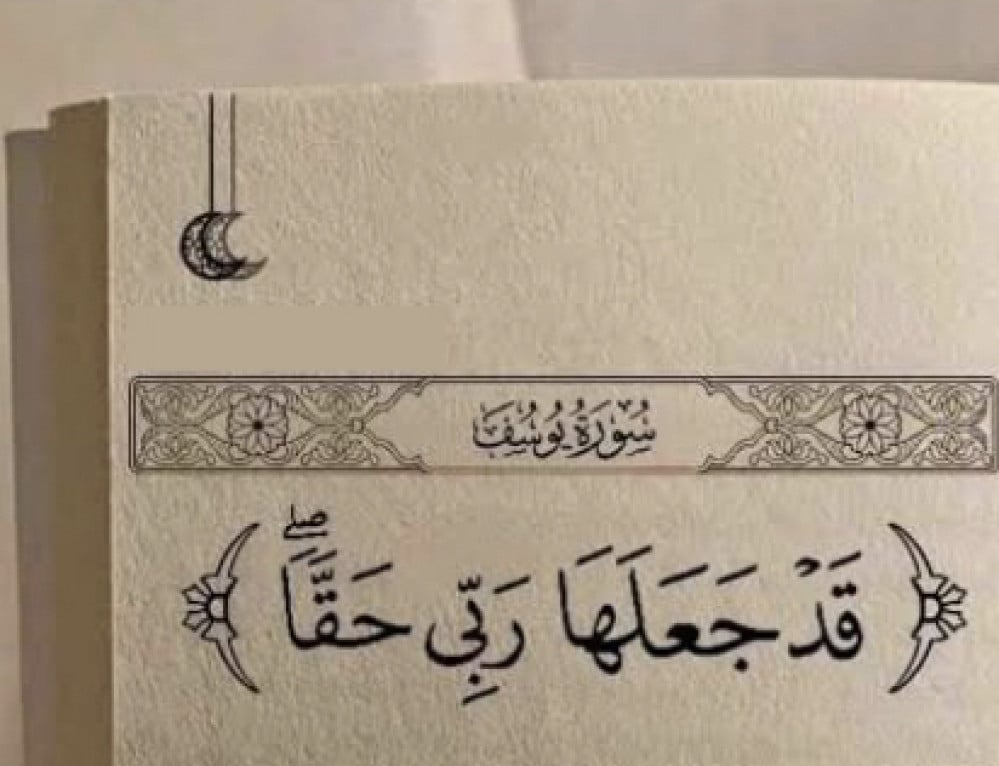 سُورَةُ يُوسُفَ
قَدْ جَعَلَهَا رَبِّي حَقًّا ۖ